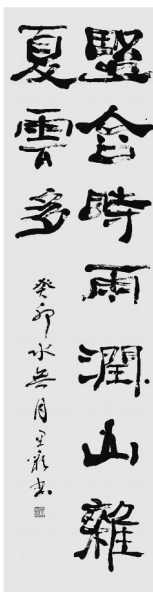 墅含時雨潤山雜
夏雲多
癸卯水無月書